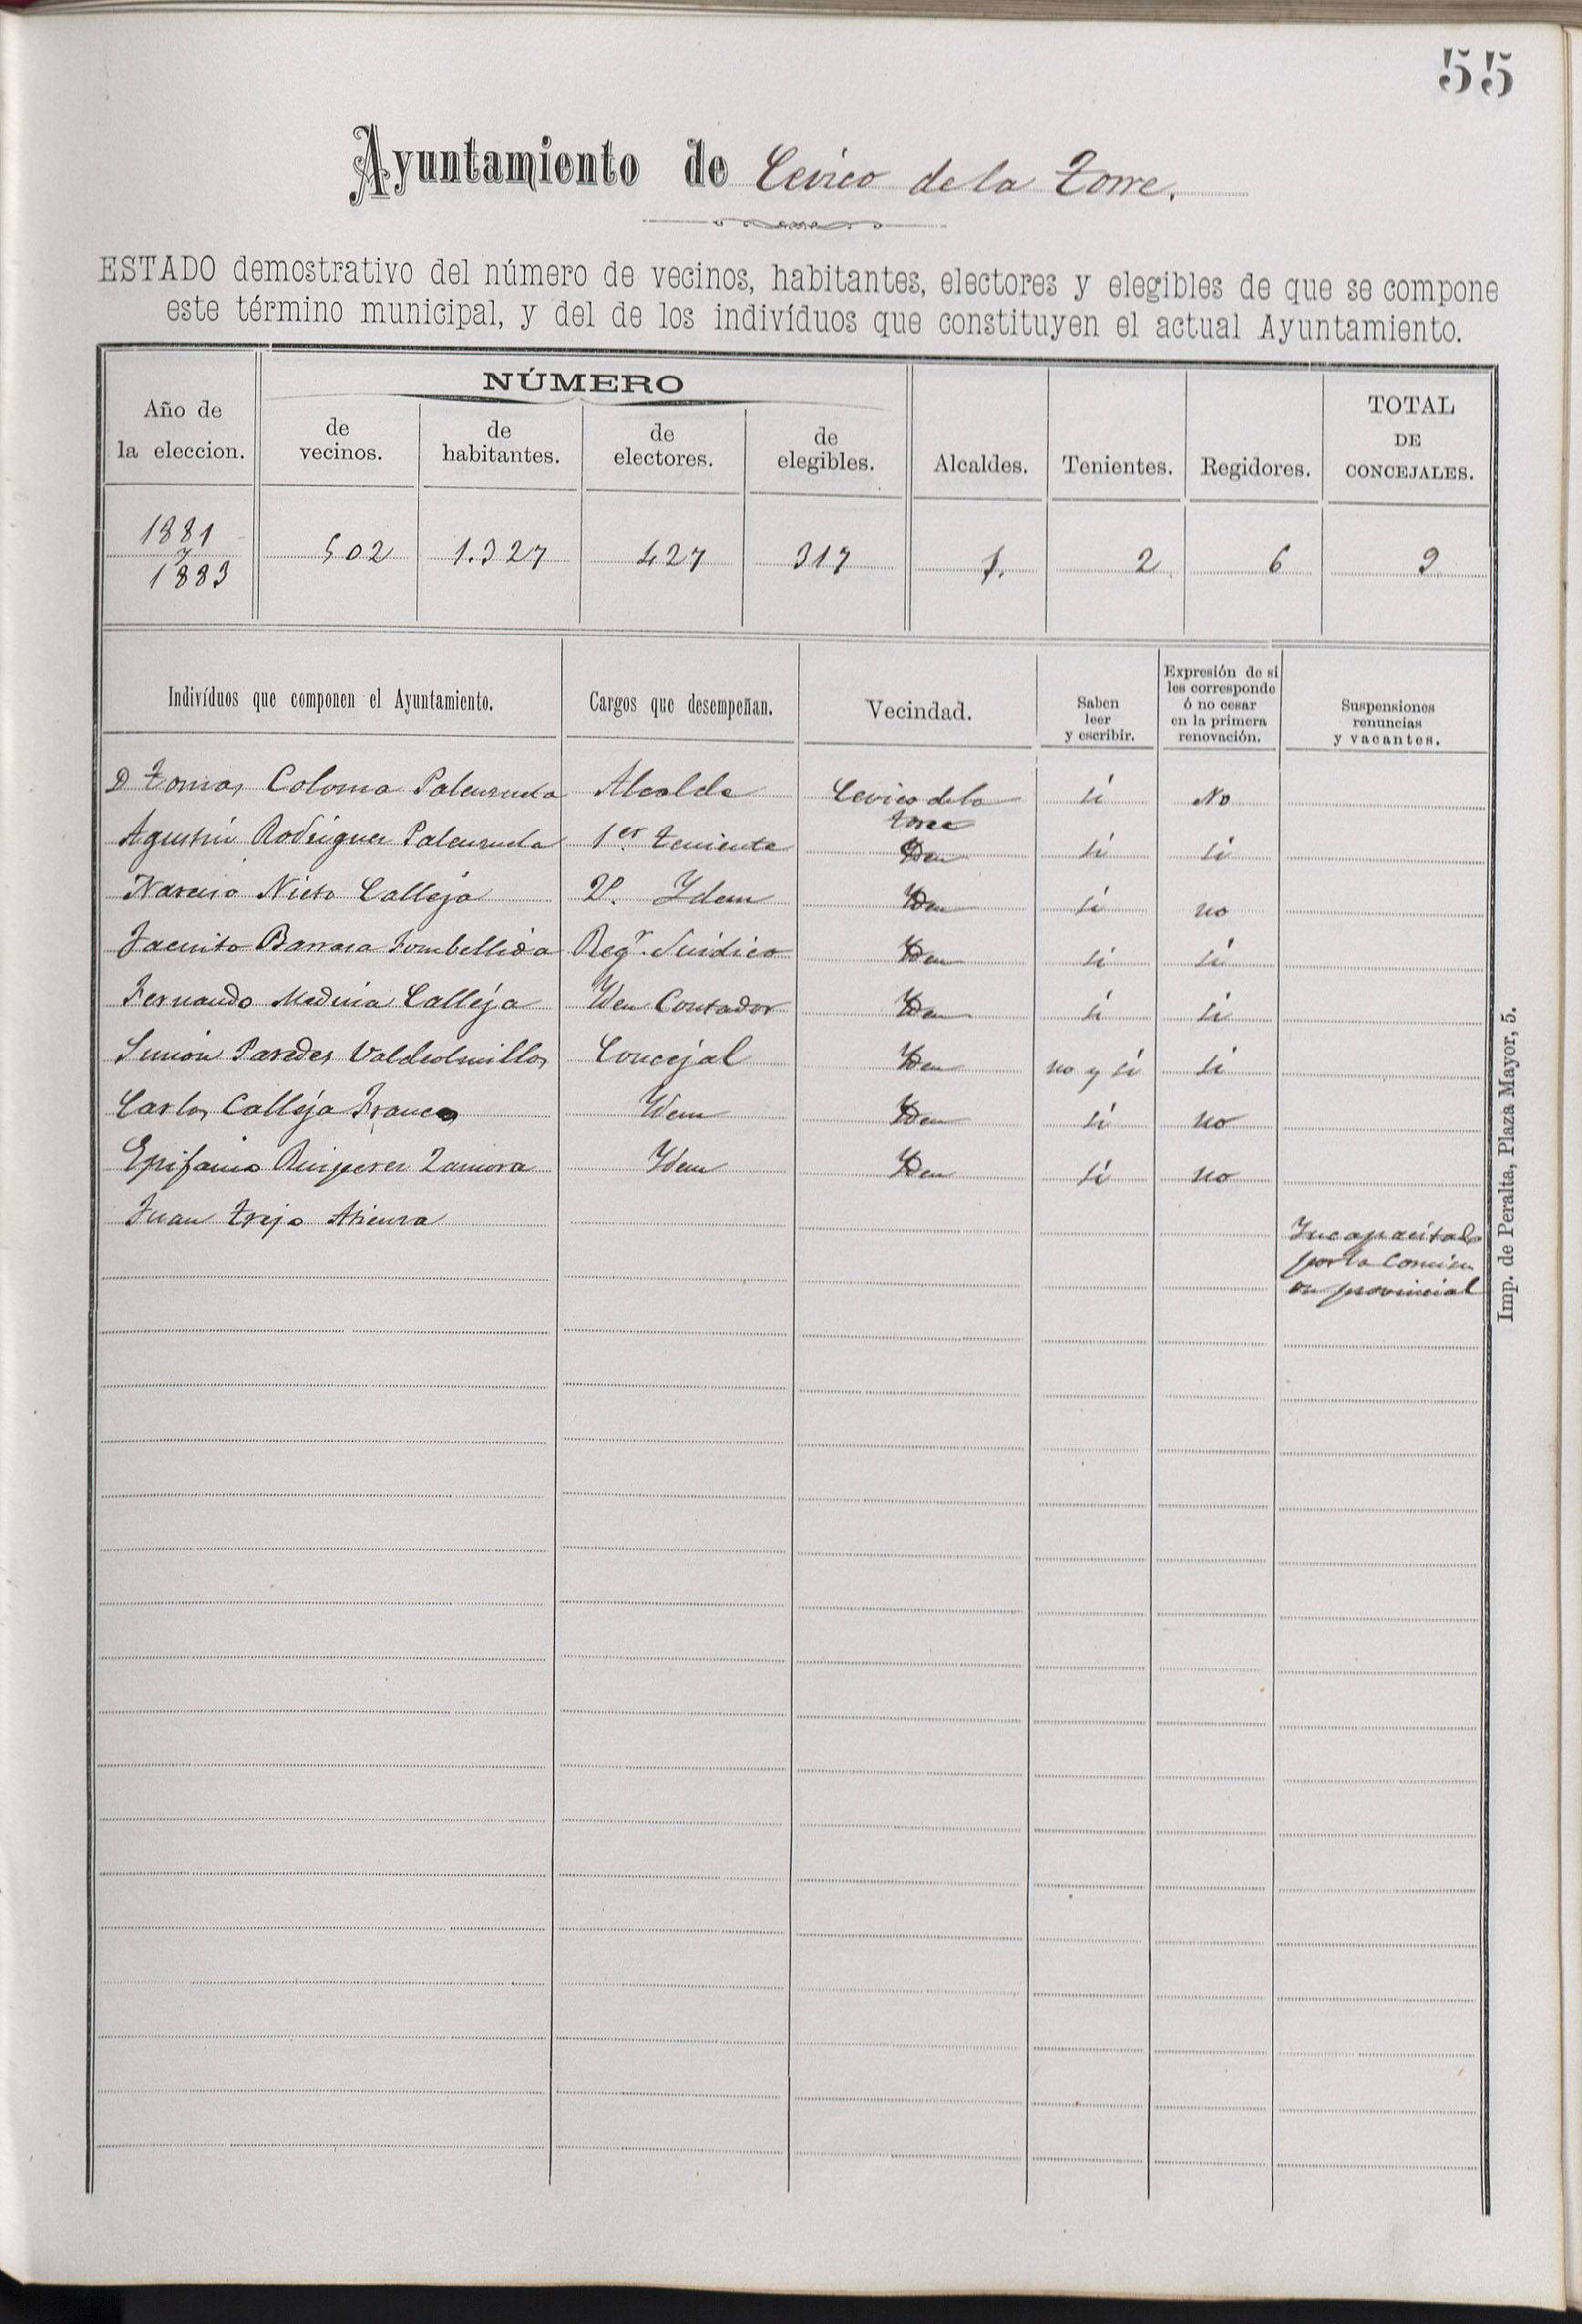 55
Ayuntamiento de Cevico de la Torre.
ESTADO demostrativo del número de vecinos, habitantes, electores y elegibles de que se compone
este término municipal, y del de los indivíduos que constituyen el actual Ayuntamiento.
Año de la eleccion. NÚMERO de vecinos. de habitantes. de electores. de elegibles. Alcaldes. Tenientes. Regidores. TOTAL DE CONCEJALES.
1881 y 1883 502 1.327 427 317 1. 2 6 9
Indivíduos que componen el Ayuntamiento. Cargos que desempeñan. Vecindad. Saben leer y escribir. Expresión de si les corresponde ó no cesar en la primera renovación. Suspensiones renuncias y vacantes.
D Tomas Coloma Palenzuela Alcalde Cevico de la Torre si No
Agustin Rodriguez Palenzuela 1er. teniente Yden si si
Narciso Nieto Calleja 2º. Ydem Yden si no
Jacinto Barcena Fombellida Regr. Sindico Yden si si
Fernando Medina Calleja Yden Contador Yden si si
Simon Paredes Valdeolmillos Concejal Yden no y si si
Carlos Calleja Franco Ydem Yden si no
Epifanio Ruiperez Zamora Ydem Yden si no
Juan Trejo Atienza Incapacitado
por la Comisi
on provincial
Imp. de Peralta, Plaza Mayor, 5.